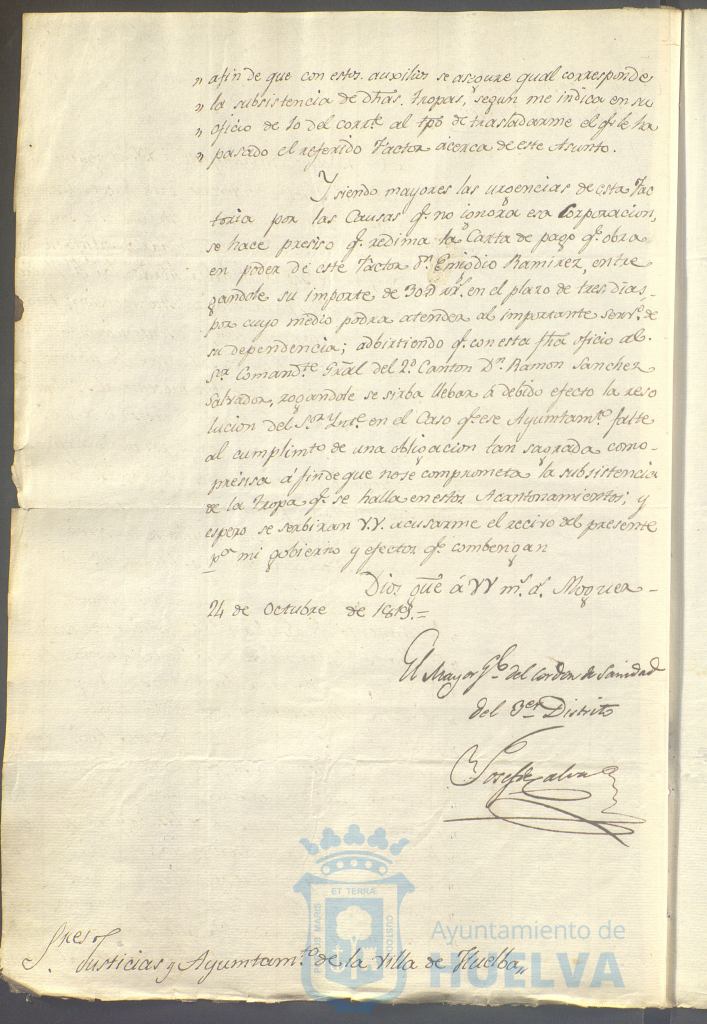 " afin de que con estos auxilios se asegure qual corresponde
" la subsistencia de dhas. tropas, segun me indica en su
" oficio de 10 del corrte. al tpo de trasladarme el qe. le ha
" pasado el referido Factor acerca de este Asunto.
Y siendo mayores las urgencias de esta Fac
toria por las Causas qe. no ignora esa Corporacion,
se hace presiso qe. redima la Carta de pago qe. obra
en poder de este Factor Dn. Emigdio Ramirez, entre
gandole su importe de 30D rs. en el plazo de tres dias,
por cuyo medio podrá atender al importante servo. de
su dependencia; adbirtiendo qe. con esta fha oficio al
Sor. Comandte. Gral del 2º Canton Dn. Ramon Sanchez
Salvador, rogandole se sirba llebar á debido efecto la reso
lucion del Sor. Ynte. en el Caso qe. ese Ayuntamto. falte
al cumplimto de una obligacion tan sagrada como
presisa á fin de que no se comprometa la subsistencia
de la tropa qe. se halla en estos Acantonamientos; y
espero se serbiran V.V. acusarme el recivo del presente
pa. mi gobierno y efectos qe. combengan
Dios gue á VV ms. as. Moguer
24 de Octubre de 1819.=
El Mayor Gl. del Cordon de Sanidad
del 3er Distrito
Josef de Calva
Sres. Justicias y Ayuntamto. de la Villa de Huelba
PORTUS MARIS ET TERRÆ CUSTODIA
Ayuntamiento de
HUELVA